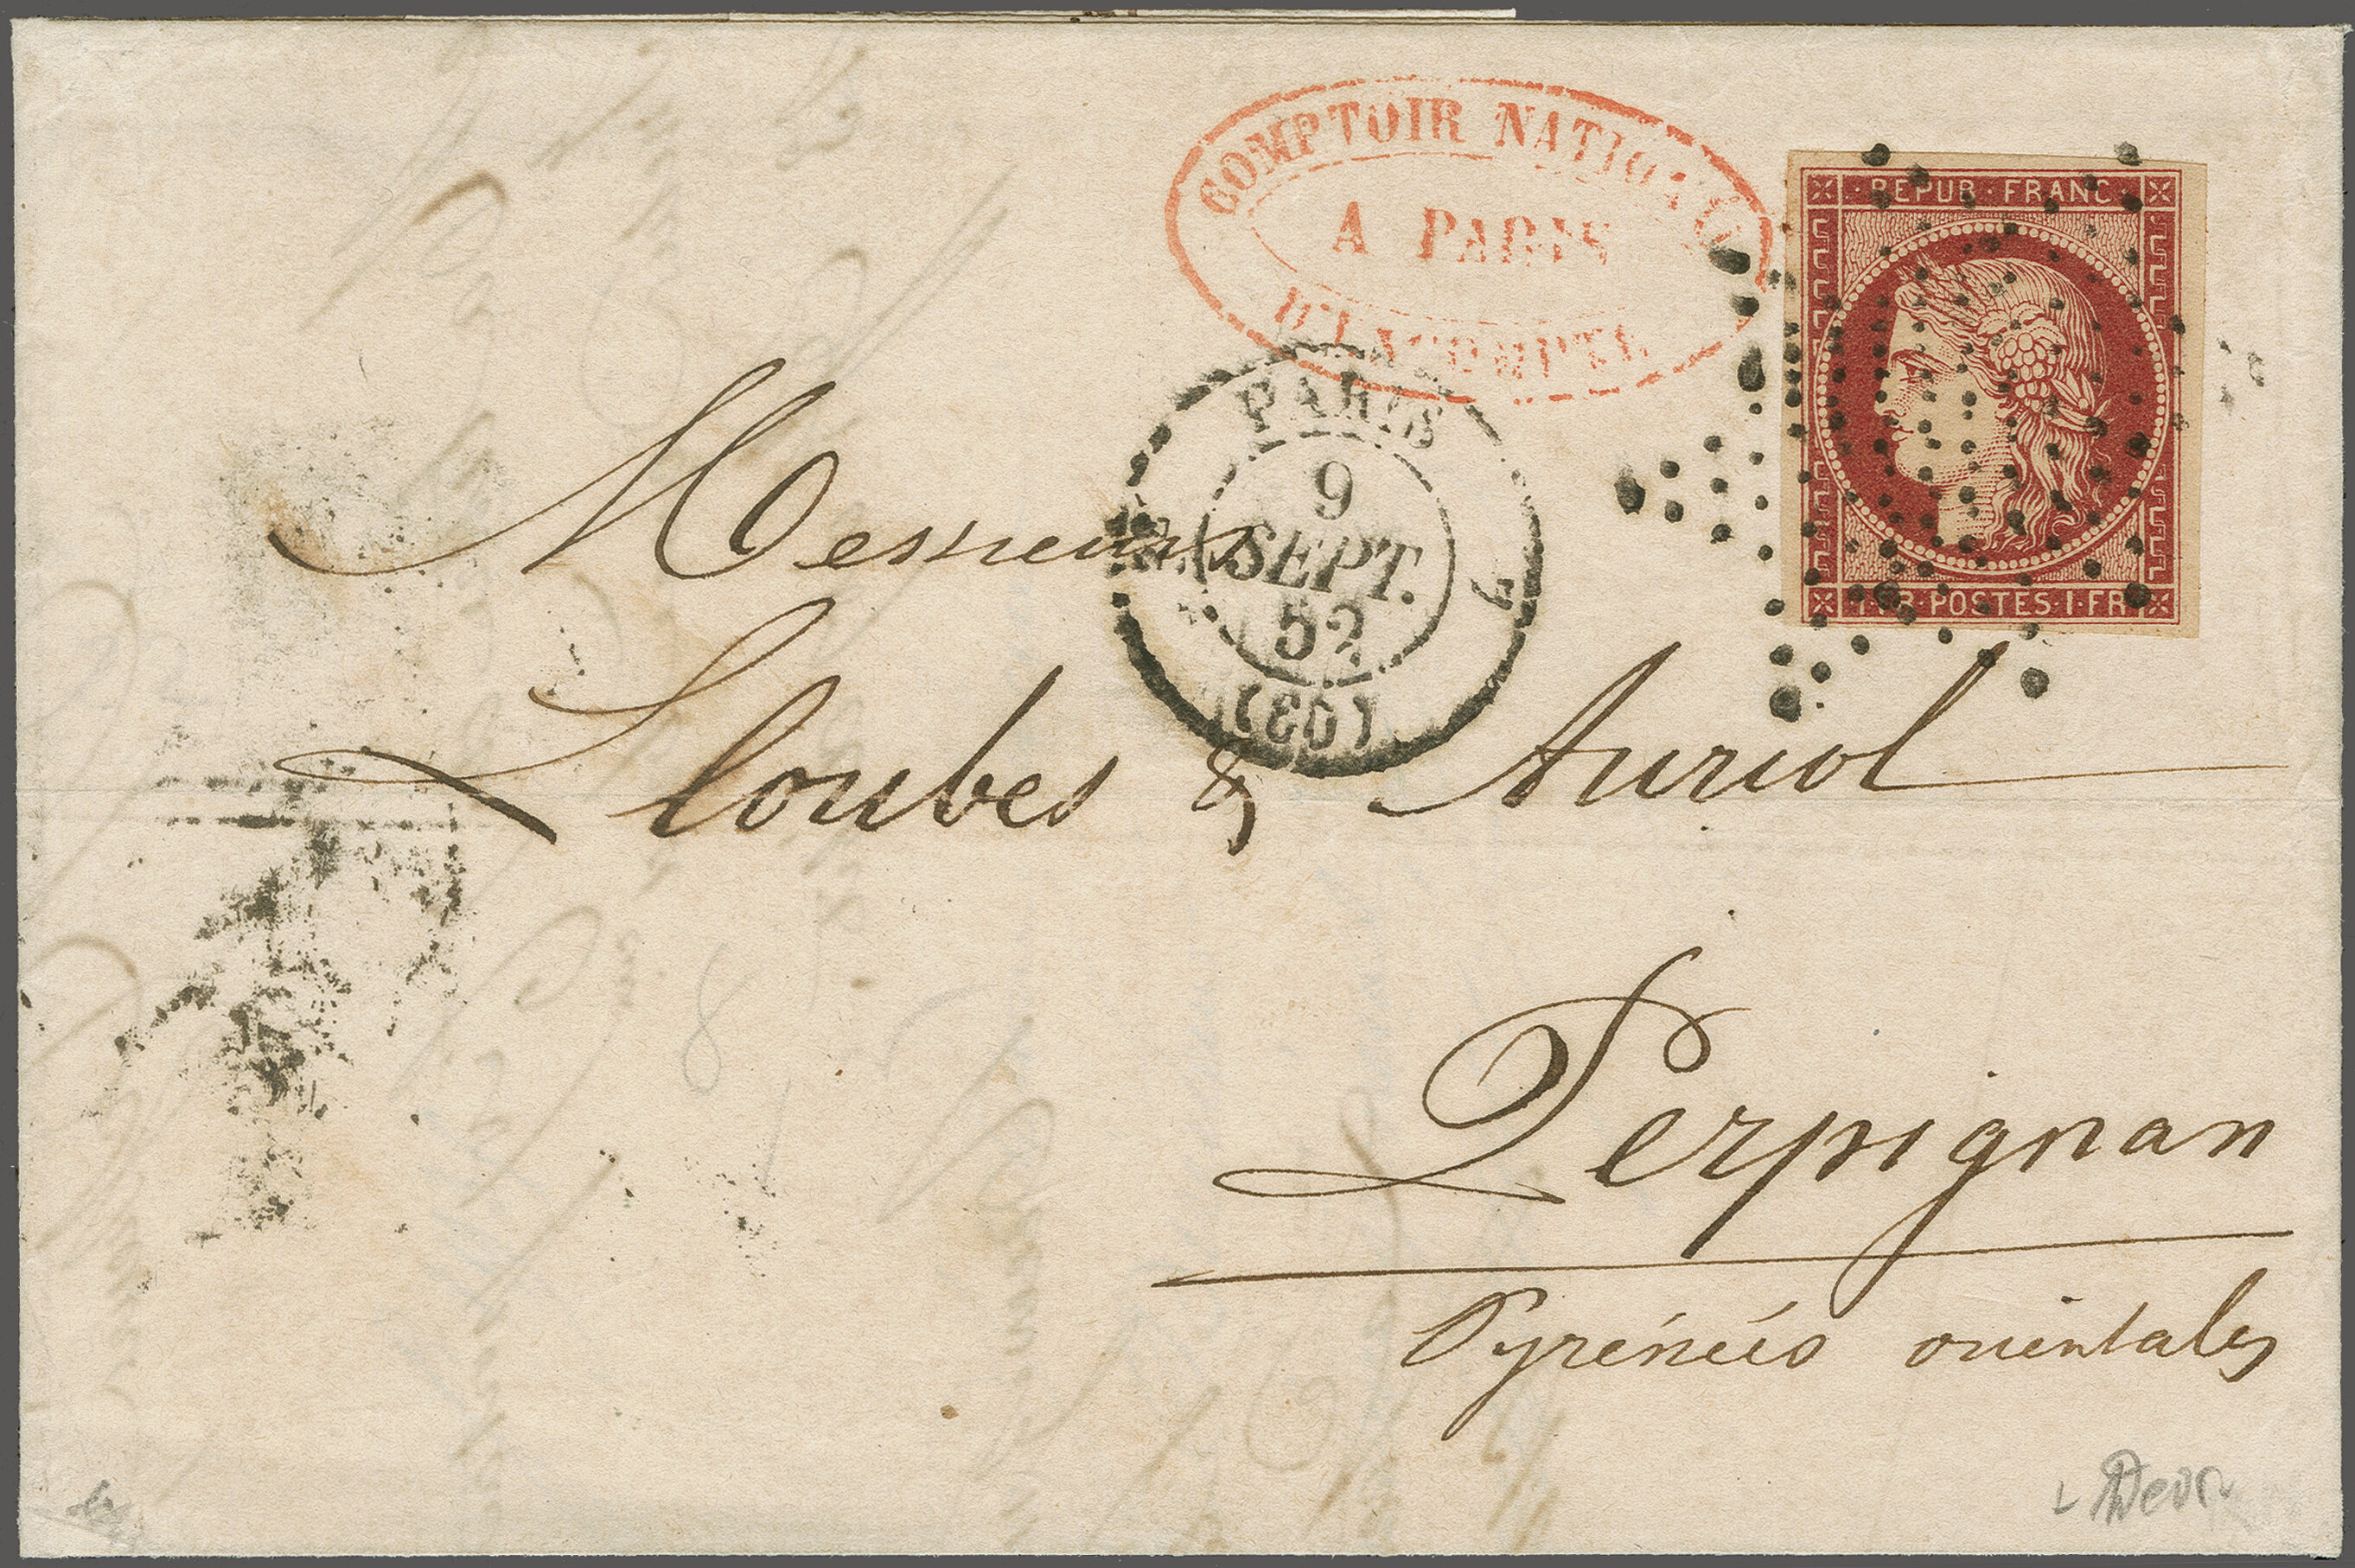 COMPTOIR NATIONAL
A PARIS
D'ESCOMPTE
· REPUB · FRANC ·
1 · FR · POSTES · 1 · FR
PARIS
9
SEPT.
52
(60)
Messieurs
Lloubes & Auriol
Perpignan
Pyrénées orientales
8